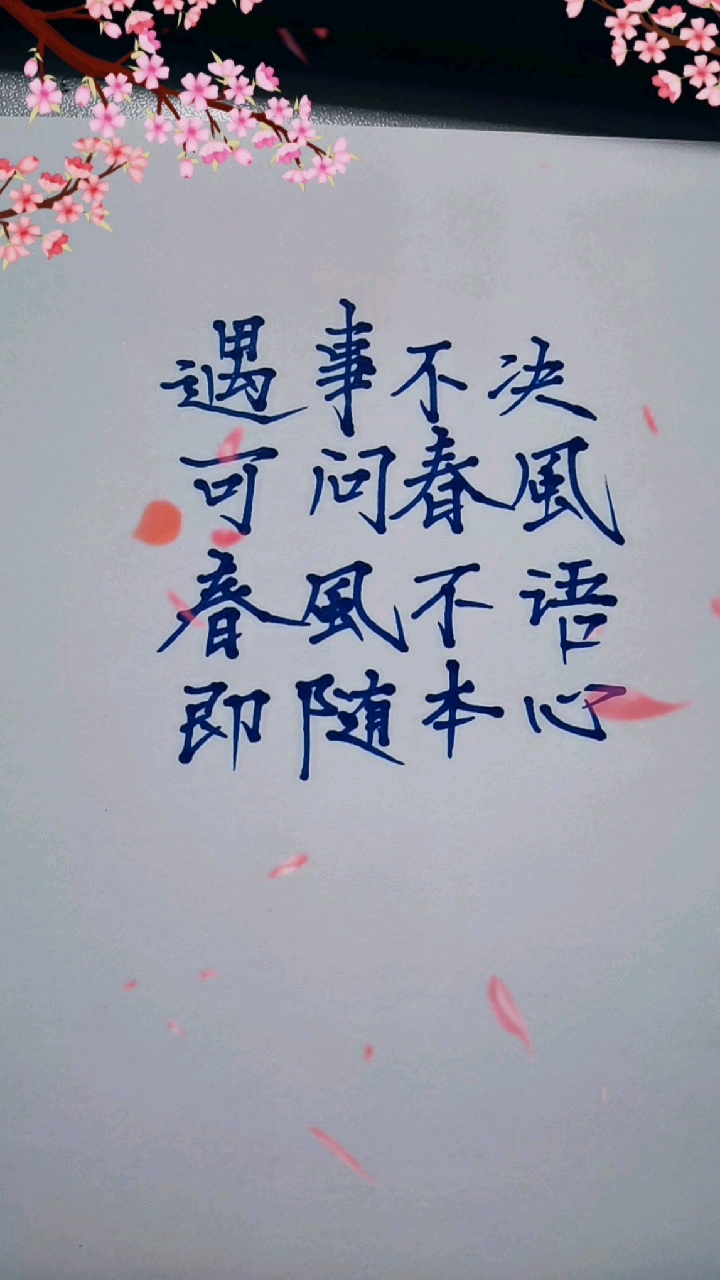 遇事不决
可问春風
春風不语
即随本心